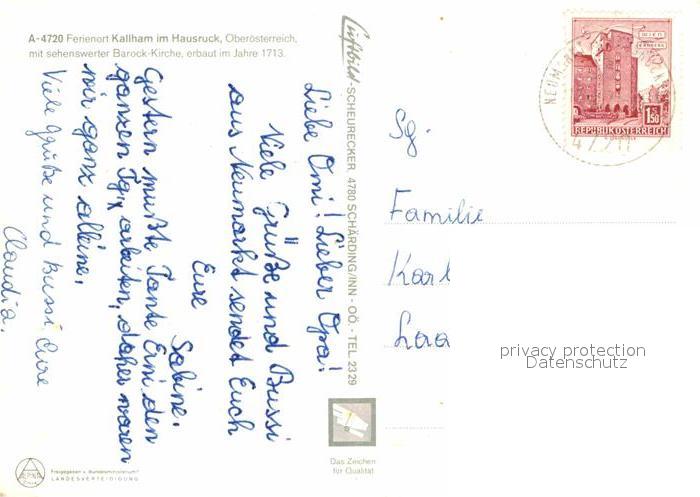 A-4720 Ferienort Kallham im Hausruck, Oberösterreich,
mit sehenswerter Barock-Kirche, erbaut im Jahre 1713.
Liebe Omi! Lieber Opa!
Viele Grüße und Bussi
aus Neumarkt sendet Euch
Eure
Sabine.
Gestern mußte Tante Erni den
ganzen Tg. arbeiten, daher waren
wir ganz alleine.
Viele Grüße und Bussi Eure
Claudia.
Luftbild-SCHEURECKER, 4780 SCHÄRDING/INN - OÖ. - TEL. 23 29
Das Zeichen
für Qualität
Freigegeben v. Bundesministerium f.
LANDESVERTEIDIGUNG
1.50
REPUBLIK ÖSTERREICH
Sg.
Familie
Karl
privacy protection
Datenschutz